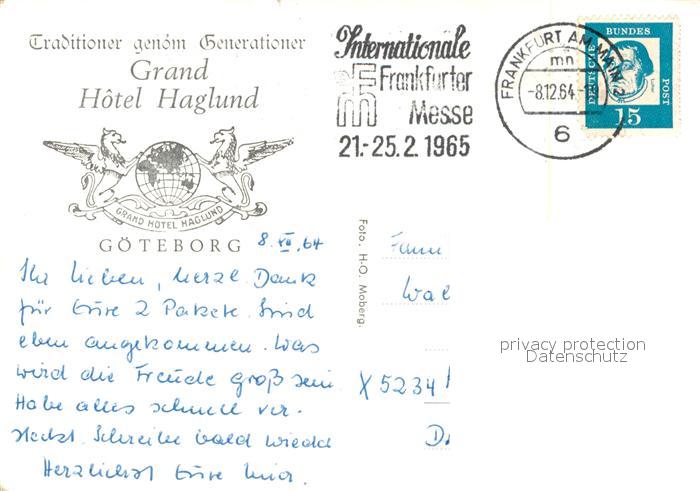 Traditioner genom Generationer
Grand
Hôtel Haglund
GRAND HOTEL HAGLUND
GÖTEBORG
Internationale
Frankfurter
Messe
21.-25.2.1965
FRANKFURT AM MAIN 2
mn
-8.12.64-
6
DEUTSCHE BUNDESPOST
15
8. XII. 64
Ihr lieben, herzl. Dank
für Eure 2 Pakete. Sind
eben angekommen. Was
wird die Freude groß sein.
Habe alles schnell ver-
steckt. Schreibe bald wieder
Herzlichst Eure
Foto. H-O. Moberg.
Fam
Wal
X 5234
D.
privacy protection
Datenschutz